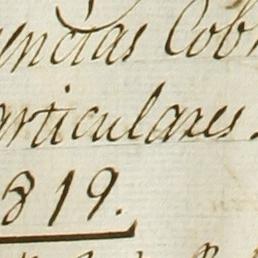 encias Cob
articulares.
819.